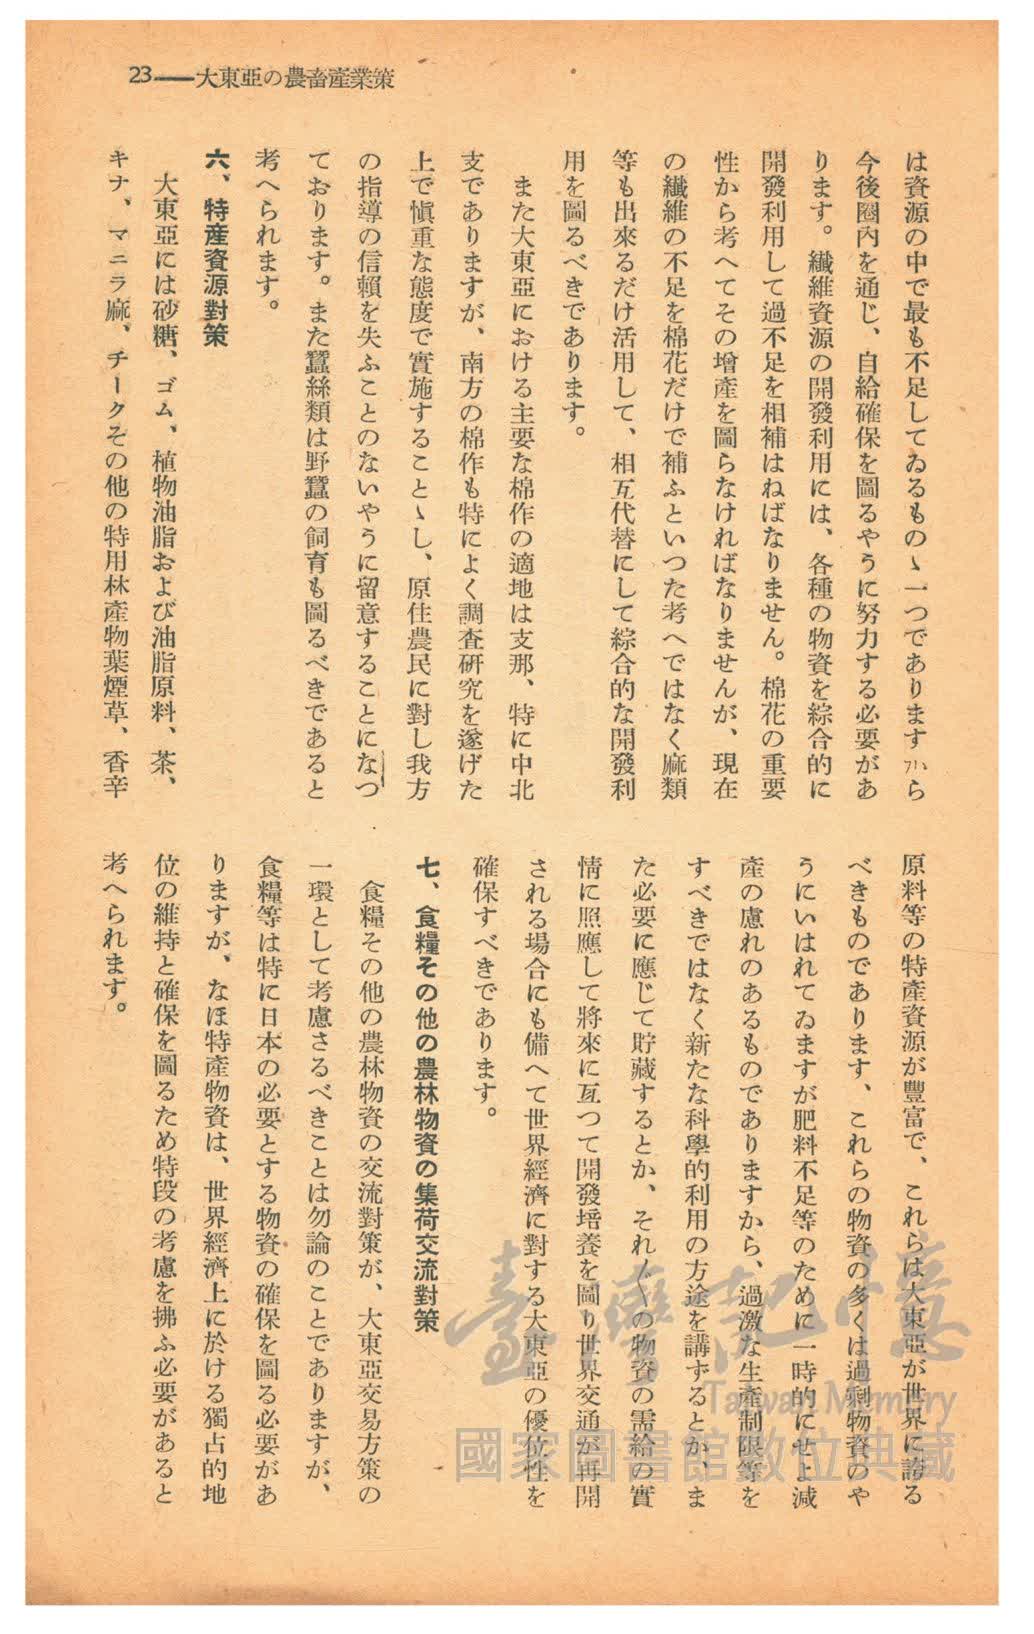 23──大東亞の農畜產業策
は資源の中で最も不足してゐるものゝ一つでありますから
今後圈內を通じ、自給確保を圖るやうに努力する必要があ
ります。纖維資源の開發利用には、各種の物資を綜合的に
開發利用して過不足を相補はねばなりません。棉花の重要
性から考へてその增產を圖らなければなりませんが、現在
の纖維の不足を棉花だけで補ふといつた考へではなく麻類
等も出來るだけ活用して、相互代替にして綜合的な開發利
用を圖るべきであります。
また大東亞における主要な棉作の適地は支那、特に中北
支でありますが、南方の棉作も特によく調査研究を遂げた
上で愼重な態度で實施することゝし、原住農民に對し我方
の指導の信賴を失ふことのないやうに留意することになつ
ております。また蠶絲類は野蠶の飼育も圖るべきであると
考へられます。
六、特產資源對策
大東亞には砂糖、ゴム、植物油脂および油脂原料、茶、
キナ、マニラ麻、チークその他の特用林產物葉煙草、香辛
原料等の特產資源が豐富で、これらは大東亞が世界に誇る
べきものであります、これらの物資の多くは過剩物資のや
うにいはれてゐますが肥料不足等のために一時的にせよ減
產の慮れのあるものでありますから、過激な生產制限等を
すべきではなく新たな科學的利用の方途を講ずるとか、ま
た必要に應じて貯藏するとか、それ〴〵の物資の需給の實
情に照應して將來に亙つて開發培養を圖り世界交通が再開
される場合にも備へて世界經濟に對する大東亞の優位性を
確保すべきであります。
七、食糧その他の農林物資の集荷交流對策
食糧その他の農林物資の交流對策が、大東亞交易方策の
一環として考慮さるべきことは勿論のことでありますが、
食糧等は特に日本の必要とする物資の確保を圖る必要があ
りますが、なほ特產物資は、世界經濟上に於ける獨占的地
位の維持と確保を圖るため特段の考慮を拂ふ必要があると
考へられます。
臺灣記憶
Taiwan Memory
國家圖書館數位典藏